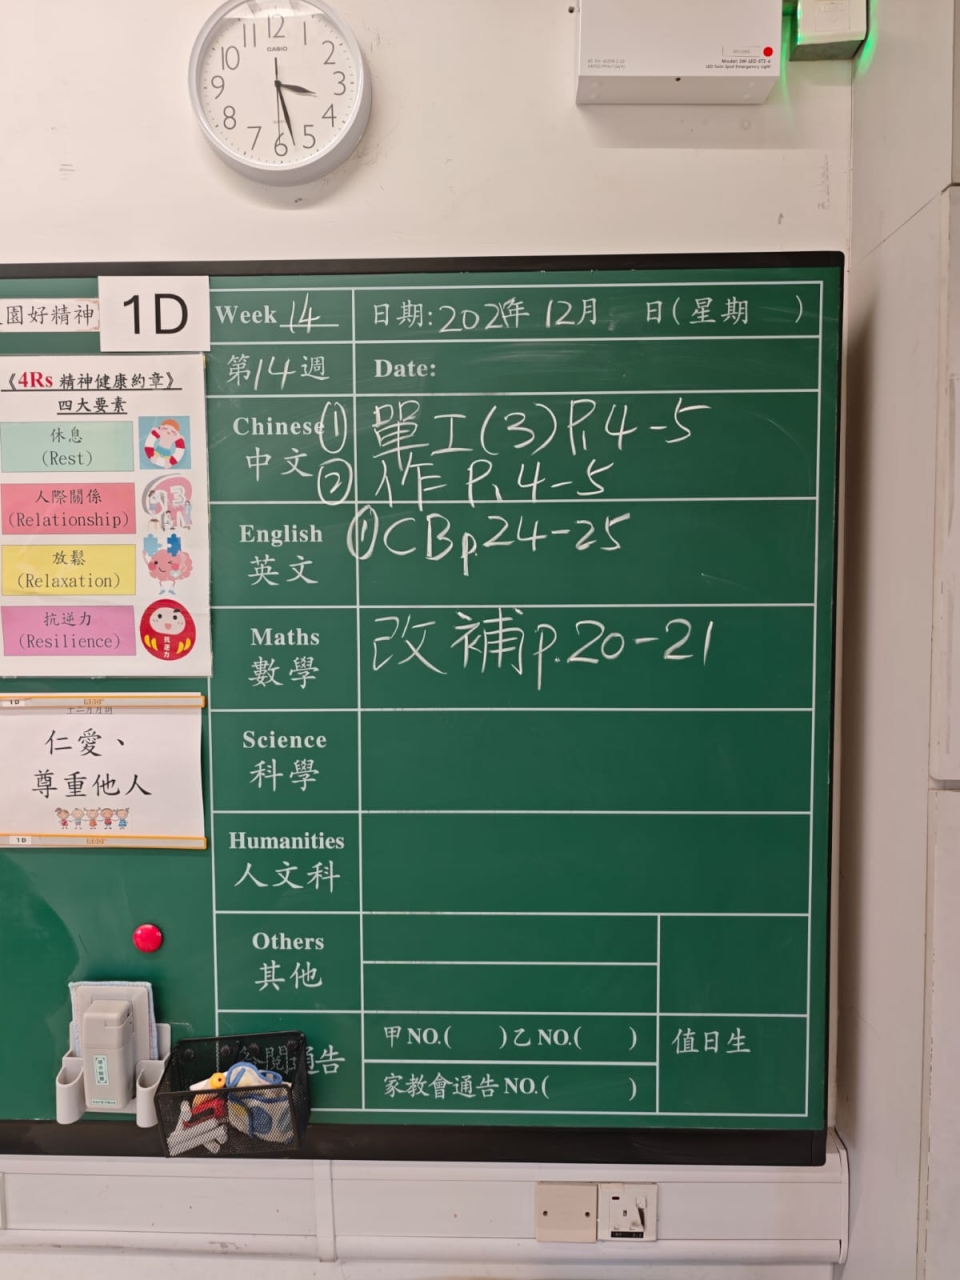 12
1
2
3
4
5
6
7
8
9
10
11
CASIO
園好精神
1D
Week 14
日期: 202 年 12月 日(星期 )
第14週
Date:
《4Rs 精神健康約章》
四大要素
休息
(Rest)
人際關係
(Relationship)
放鬆
(Relaxation)
抗逆力
(Resilience)
抗逆力
Chinese
中文
① 單工(3)P.4-5
② 作 P.4-5
English
英文
① CB p.24-25
Maths
數學
改補 p.20-21
1D
十二月
仁愛、
尊重他人
1D
Science
科學
Humanities
人文科
Others
其他
通告
甲NO.( )乙NO.( )
家教會通告NO.( )
值日生